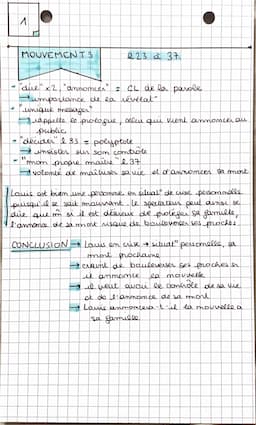 1
MOUVEMENT 3 l 23 à 37
- "dire" x2, "annoncer" = CL de la parole
→ importance de la révélat°
- "unique messager"
→ rappelle le prologue, celui qui vient annoncer au
public
- "décider" l 33 = polyptote
→ insister sur son contrôle
- "mon propre maître" l 37
→ volonté de maîtriser sa vie et d'annoncer sa mort
Louis est bien une personne en situat° de crise personnelle
puisqu'il se sait mourant. le spectateur peut ainsi se
dire que m si il est désireux de protéger sa famille,
l'annonce de sa mort risque de bouleverser ses proches
CONCLUSION → Louis en crise → situat° personnelle, sa
mort prochaine
→ craint de bouleverser ses proches si
il annonce la nouvelle
→ il veut avoir le contrôle de sa vie
et de l'annonce de sa mort
→ Louis annoncera-t-il la nouvelle à
sa famille